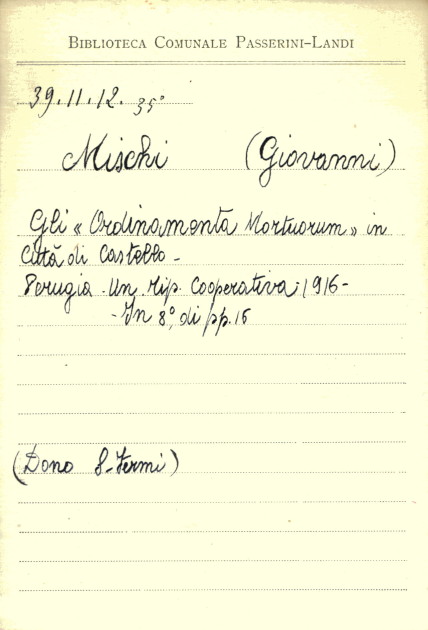 BIBLIOTECA COMUNALE PASSERINI-LANDI
39.11.12. 35°
Mischi (Giovanni)
Gli « Ordinamenta Mortuorum » in
Città di Castello -
Perugia - Un. tip. Cooperativa, 1916 -
- In 8°, di pp. 16
(Dono S. Fermi)